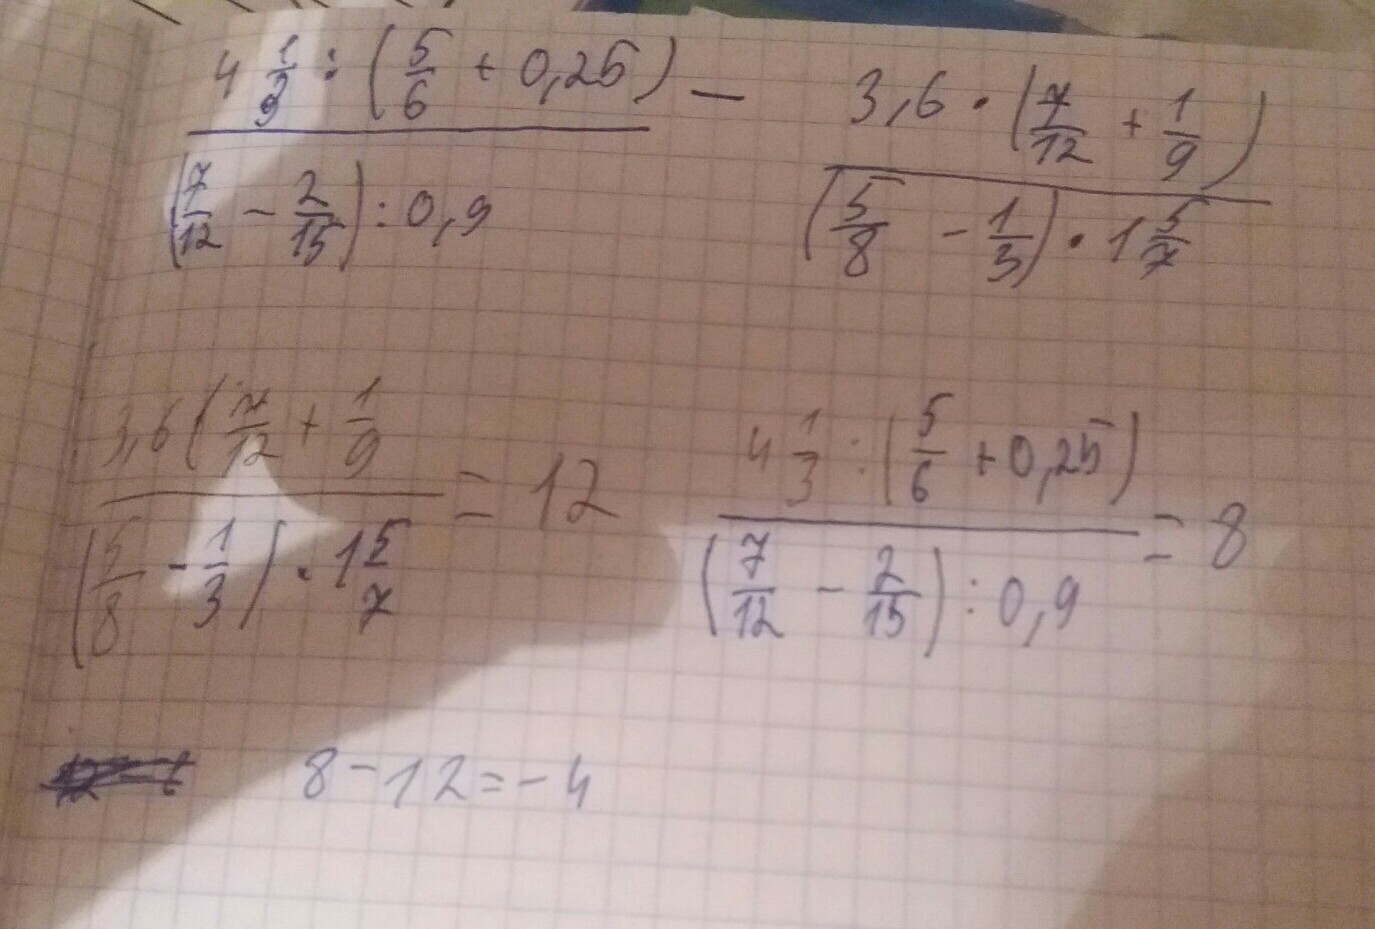 4 1/3 : (5/6 + 0,25) / (7/12 - 2/15) : 0,9 — 3,6 · (7/12 + 1/9) / (5/8 - 1/3) · 1 5/7
3,6 (7/12 + 1/9 / (5/8 - 1/3) · 1 5/7 = 12
4 1/3 : (5/6 + 0,25) / (7/12 - 2/15) : 0,9 = 8
8 - 12 = - 4